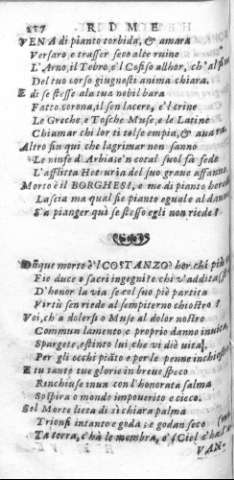 227 RIME
VENA di pianto torbida, & amara
Versaro e trasser seco alte ruine
L'Arno, il Tebro, e'l Cefiso allhor, ch'al
Del tuo corso giugnesti anima chiara.
E di se stesse ala tua nobil bara
Fatto corona, il sen lacero, e'l crine
Le Greche, e Tosche Muse, e le Latine
Chiamar chi lor ti tolse empia, &
Altro fin qui che lagrimar non sanno
Le ninfe d'Arbia: e'n cotal suol sà sede
L'afflitta del suo grave affanno.
Morto è il BORGHESI, e me di pianto herede
Lascia ma qual fie pianto eguale al danno
S'a pianger quì se stesso egli non riede?
Dunque morto è'l COSTANZO? hor chi
Fie duce a' sacri ingegni? e chi v'addita
D'honor la via se col suo piè partita
Virtù sen riede al sempiterno chiostro?
Voi, ch'a dolersi o Muse al dolor nostro
Commun lamento, e proprio danno invita,
Spargete, estinto lui, che vi diè vita,
Per gli occhi pianto e per le penne
E tu tante tue glorie in breve speco
Rinchiuse in un con l'honorata salma
Sospira o mondo impoverito e cieco.
Sol Morte lieta di sì chiara palma
Trionfi intanto e goda; e godan seco
La terra, c'hà le membra, e'l Ciel c'hà
VAN-